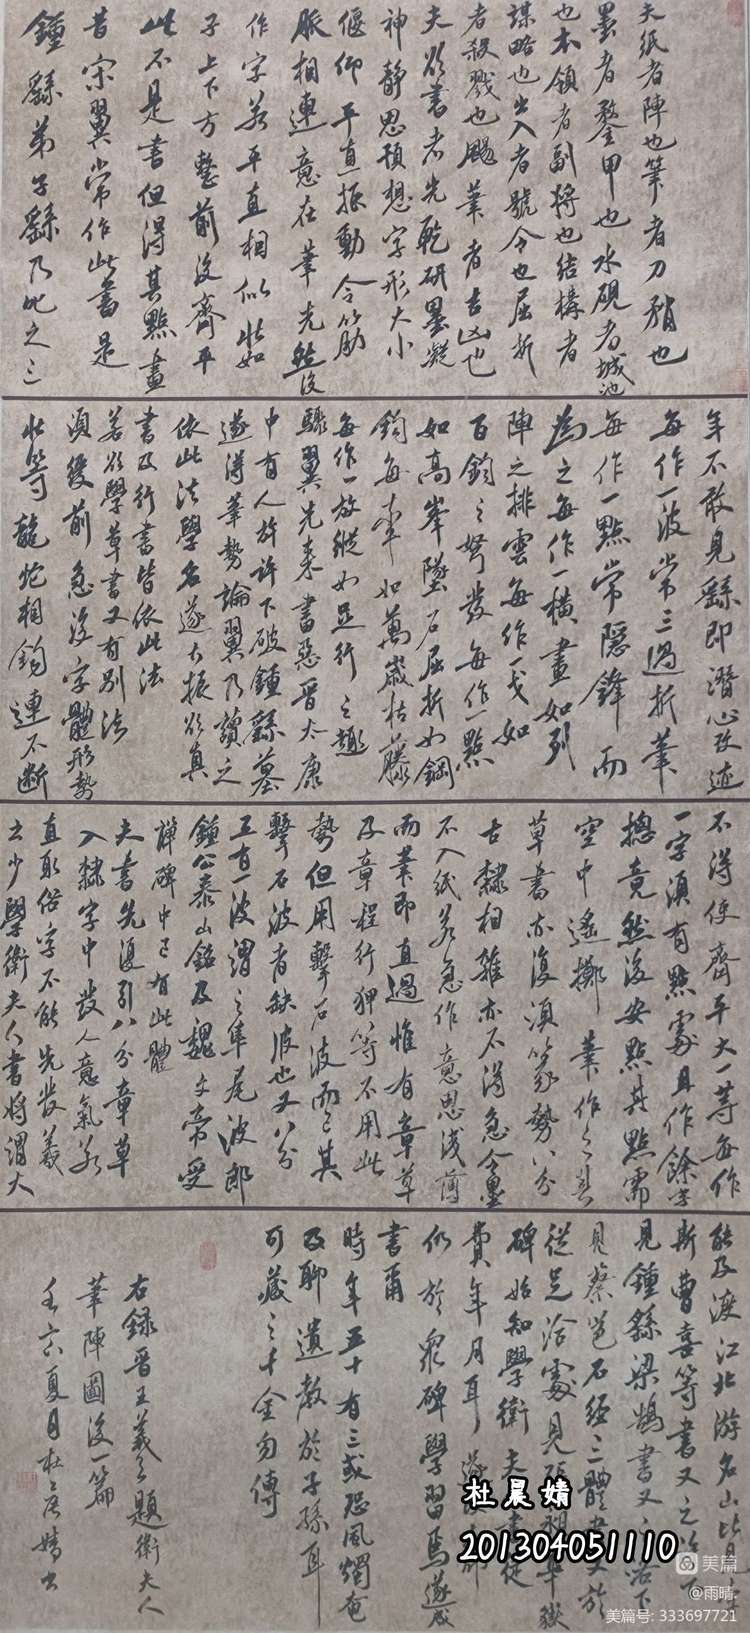 夫纸者陣也筆者刀矟也
墨者鍪甲也水硯者城池
也本領者副将也結構者
謀略也出入者號令也屈折
者殺戮也颺筆者吉凶也
夫欲書者先乾研墨凝
神靜思預想字形大小
偃仰平直振動令筋
脈相連意在筆先然後
作字若平直相似状如
子上下方整前後齊平
此不是書但得其點畫
昔宋翼常作此書是
鍾繇弟子繇乃叱之三
年不敢見繇即潛心改迹
每作一波常三過折筆
每作一點常隱鋒而
為之每作一横畫如列
陣之排雲每作一戈如
百鈞之弩發每作一點
如高峯墜石屈折如鋼
鈎每牽如萬歲枯藤
每作一放縱如足行之趣
驟翼先来書惡晋太康
中有人於許下破鍾繇墓
遂得筆勢論翼乃讀之
依此法學名遂大振欲真
書及行書皆依此法
若欲學草書又有别法
須緩前急後字體形勢
状等龍蛇相鈎連不断
不得使齊平大一等每作
一字須有點處且作餘字
揔竟然後安點其點需
空中遙擲筆作之其
草書亦復須篆勢八分
古隸相雜亦不得急令墨
不入紙若急作意思淺薄
而筆即直過惟有章草
及章程行狎等不用此
勢但用擊石波而已其
擊石波者缺波也又八分
更有一波謂之隼尾波即
鍾公泰山銘及魏文帝受
禪碑中已有此體
夫書先須引八分章草
入隸字中發人意氣若
直取俗字不能先發羲
之少學衛夫人書将謂大
能及渡江北游名山比見李
斯曹喜等書又之許下
見鍾繇梁鵠書又之洛下
見蔡邕石經三體書又於
從兄洽處見張昶華嶽
碑始知學衛夫人書徒
費年月耳遂改本師
仍於衆碑學習焉遂成
書爾
時年五十有三或恐風燭奄
及聊遺教於子孫耳
可藏之千金勿傳
右録晋王羲之題衛夫人
筆陣圖後一篇
夏月杜晨婧書
杜晨婧
201304051110
美篇
@雨晴.
美篇号: 333697721